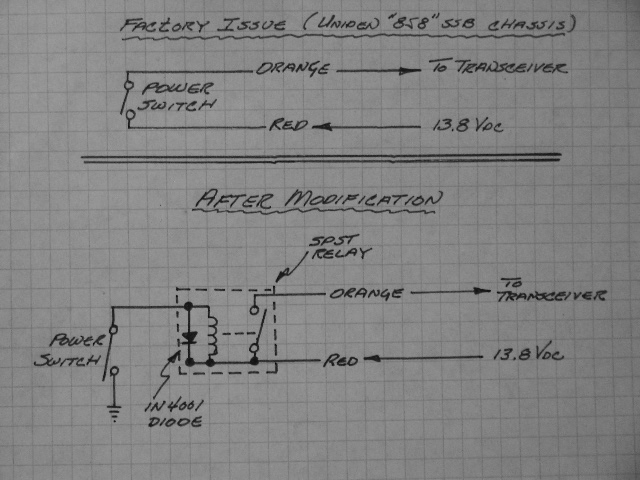 FACTORY ISSUE (UNIDEN "858" SSB CHASSIS)
ORANGE
TO TRANSCEIVER
POWER
SWITCH
RED
13.8 VDC
AFTER MODIFICATION
SPST
RELAY
ORANGE
TO
TRANSCEIVER
POWER
SWITCH
RED
13.8 VDC
IN4001
DIODE